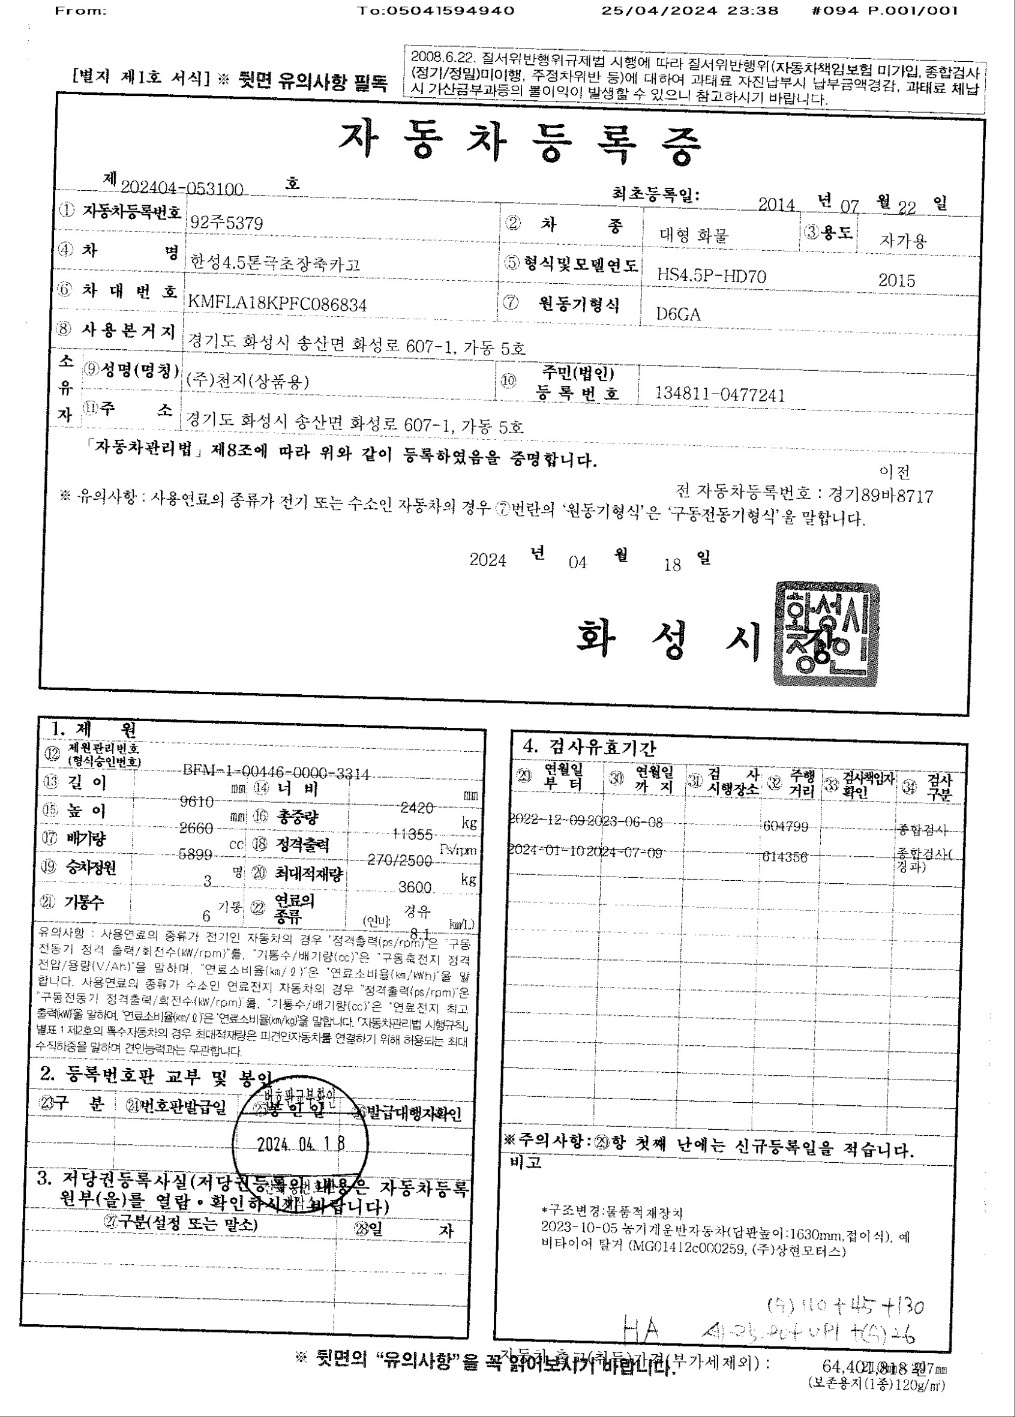 From: To:05041594940 25/04/2024 23:38 #094 P.001/001
[별지 제1호 서식] ※ 뒷면 유의사항 필독
2008.6.22. 질서위반행위규제법 시행에 따라 질서위반행위(자동차책임보험 미가입, 종합검사
(정기/정밀)미이행, 주정차위반 등)에 대하여 과태료 자진납부시 납부금액경감, 과태료 체납
시 가산금부과등의 불이익이 발생할 수 있으니 참고하시기 바랍니다.
자동차등록증
제 202404-053100 호 최초등록일: 2014 년 07 월 22 일
① 자동차등록번호 92주5379 ② 차 종 대형 화물 ③용도 자가용
④ 차 명 한성4.5톤극초장축카고 ⑤ 형식및모델연도 HS4.5P-HD70 2015
⑥ 차대번호 KMFLA18KPFC086834 ⑦ 원동기형식 D6GA
⑧ 사용본거지 경기도 화성시 송산면 화성로 607-1, 가동 5호
소유자 ⑨성명(명칭) (주)천지(상품용) ⑩ 주민(법인)등록번호 134811-0477241
⑪주 소 경기도 화성시 송산면 화성로 607-1, 가동 5호
「자동차관리법」 제8조에 따라 위와 같이 등록하였음을 증명합니다.
이전
전 자동차등록번호 : 경기89바8717
※ 유의사항 : 사용연료의 종류가 전기 또는 수소인 자동차의 경우 ⑦번란의 '원동기형식'은 '구동전동기형식'을 말합니다.
2024 년 04 월 18 일
화성시장
화성시
장인
1. 제 원
⑫ 제원관리번호(형식승인번호) BFM-1-00446-0000-3314
⑬ 길이 9610 mm ⑭ 너비 2420 mm
⑮ 높이 2660 mm ⑯ 총중량 11355 kg
⑰ 배기량 5899 cc ⑱ 정격출력 270/2500 Ps/rpm
⑲ 승차정원 3 명 ⑳ 최대적재량 3600 kg
㉑ 기통수 6 기통 ㉒ 연료의 종류 경유 (연비: 8.1 km/L)
유의사항 : 사용연료의 종류가 전기인 자동차의 경우 "정격출력(ps/rpm)"은 "구동
전동기 정격 출력/회전수(kW/rpm)"를, "기통수/배기량(cc)"은 "구동축전지 정격
전압/용량(V/Ah)"을 말하며, "연료소비율(km/ℓ)"은 "연료소비율(km/kWh)"을 말
합니다. 사용연료의 종류가 수소인 연료전지 자동차의 경우 "정격출력(ps/rpm)"은
"구동전동기 정격출력/회전수(kW/rpm)를, "기통수/배기량(cc)"은 "연료전지 최고
출력(kW)을 말하며, "연료소비율(km/ℓ)"은 "연료소비율(km/kg)을 말합니다. 「자동차관리법 시행규칙」
별표 1 제2호의 특수자동차의 경우 최대적재량은 피견인자동차를 연결하기 위해 허용되는 최대
수직하중을 말하며 견인능력과는 무관합니다.
2. 등록번호판 교부 및 봉인
㉓구 분 ㉔번호판발급일 ㉕봉인일 ㉖발급대행자확인
번호판교부확인
2024. 04. 18
3. 저당권등록사실(저당권등록의 내용은 자동차등록
원부(을)를 열람・확인하시기 바랍니다)
㉗구분(설정 또는 말소) ㉘일 자
4. 검사유효기간
㉙ 연월일부터 ㉚ 연월일까지 ㉛ 검사시행장소 ㉜ 주행거리 ㉝ 검사책임자확인 ㉞ 검사구분
2022-12-09 2023-06-08 604799 종합검사
2024-01-10 2024-07-09 614356 종합검사(경과)
※주의사항:㉙항 첫째 난에는 신규등록일을 적습니다.
비고
*구조변경:물품적재장치
2023-10-05 농기계운반자동차(답판높이:1630mm,접이식), 예
비타이어 탈거 (MG01412c000259, (주)상현모터스)
(A) 110+45+130
HA
※ 뒷면의 "유의사항"을 꼭 읽어보시기 바랍니다.
자동차 출고(취득)가격(부가세제외) : 64,401,818 원
(보존용지(1종)120g/㎡)